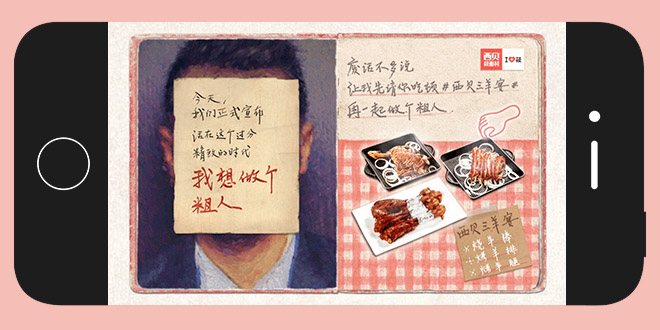 今天，
我们正式宣布
活在这个过分
精致的时代
我想做个
粗人
废话不多说
让我先请你吃顿#西贝三羊宴#
再一起做个粗人.
西贝
莜面村
I莜
西贝三羊宴
× 烧羊棒
× 烤羊排
× 烤羊腿